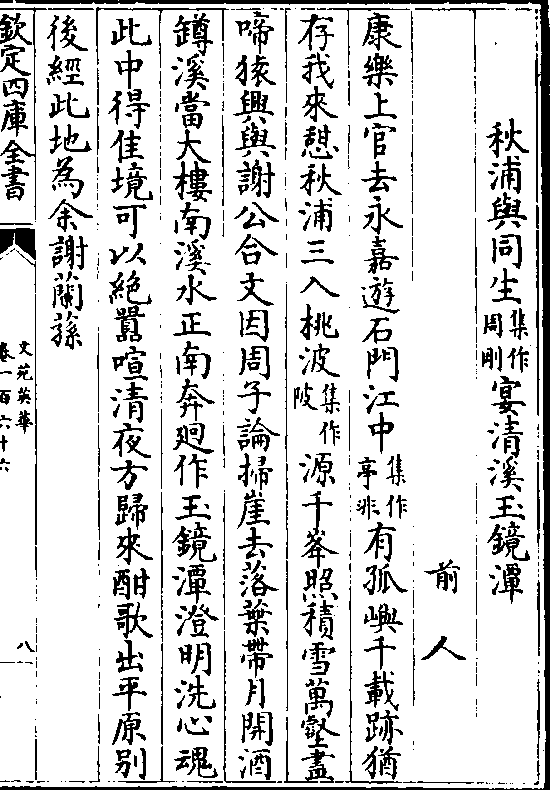 秋浦與同生集作周剛宴清溪玉鏡潭
前人
康樂上官去永嘉遊石門江中集作亭非有孤嶼千載跡猶
存我來憇秋浦三入桃波集作陂源千峯照積雪萬壑盡
啼猿興與謝公合文因周子論掃崖去落葉帶月開酒
罇溪當大樓南溪水正南奔廻作玉鏡潭澄明洗心魂
此中得佳境可以絶囂喧清夜方歸來酣歌出平原别
後經此地為余謝蘭蓀
欽定四庫全書
文苑英華
卷一百六十六
八